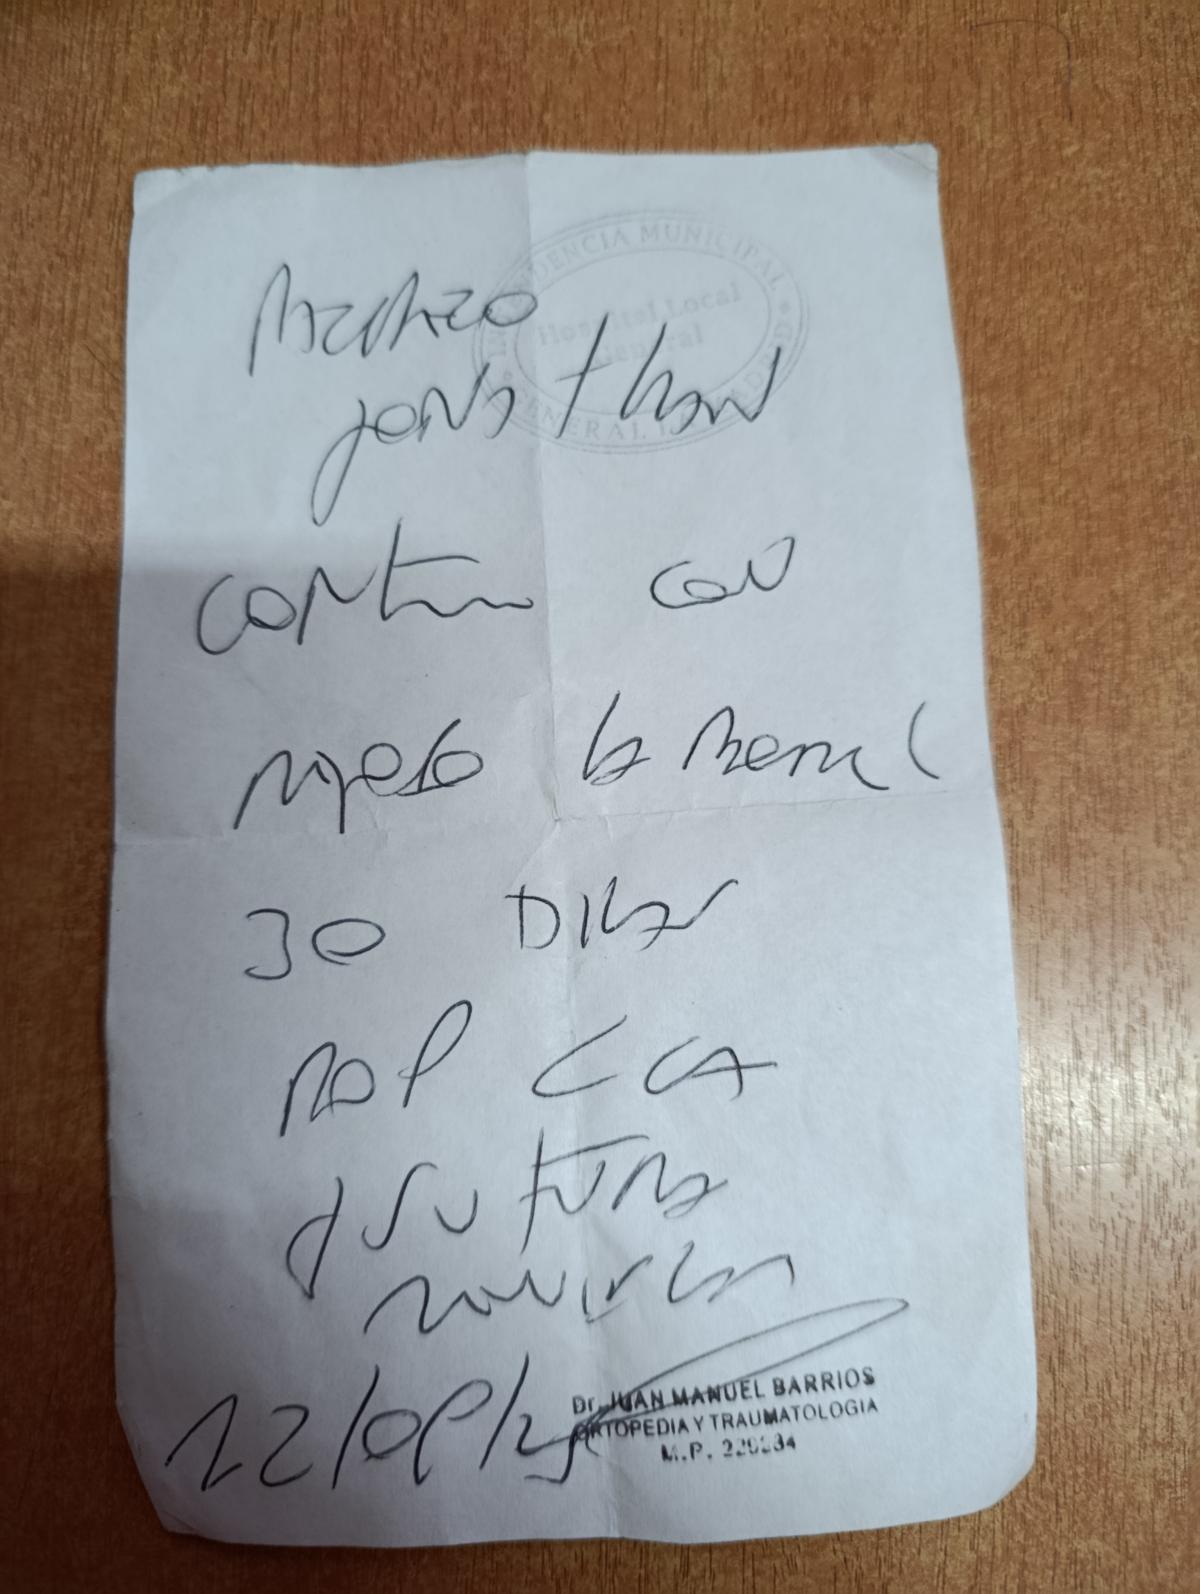 INTENDENCIA MUNICIPAL
Hospital Local
General
GENERAL
Jonathan
Continua con
reposo laboral
30 DIAS
POP LCA
y sutura
meniscal
12/09/25
Dr. JUAN MANUEL BARRIOS
ORTOPEDIA Y TRAUMATOLOGIA
M.P.